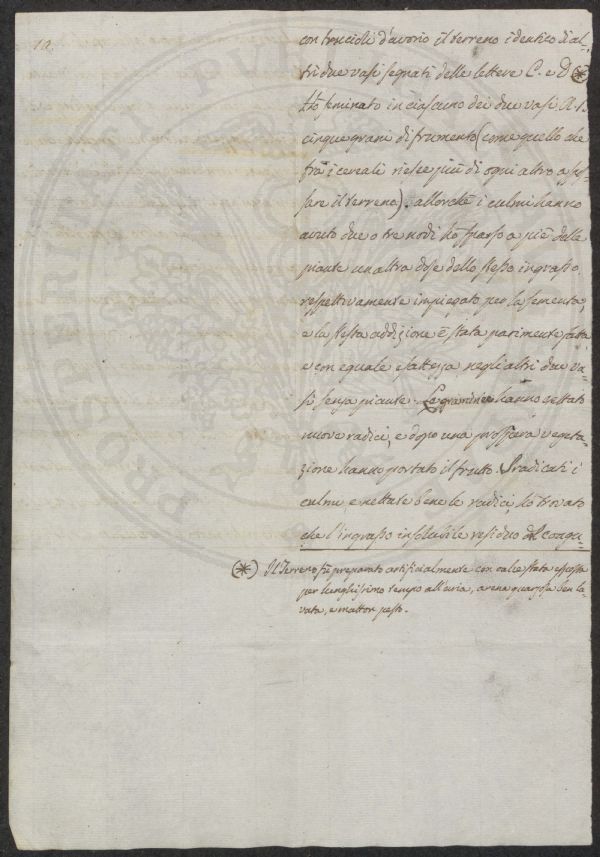 10.
con truccioli d'avorio il terreno identico di al-
tri due vasi segnati delle lettere C. e D (*)
Ho seminato in ciascuno dei due vasi A. B.
cinque grani di frumento (come quello che
fra i cereali riesce più di ogni altro a spos-
sare il terreno). allorchè i culmi hanno
avuto due o tre nodi ho sparso a piè delle
piante un altra dose dello stesso ingrasso,
respettivamente impiegato per la sementa;
e la stessa addizione è stata parimente fatta
e con eguale esattezza negli altri due va-
si senza piante. Le graminee hanno gettato
nuove radici, e dopo una prospera vegeta-
zione hanno portato il frutto. Sradicati i
culmi e nettate bene le radici, ho trovato
che l'ingrasso insolubile residuo del conqu-
(*) Il Terreno fù preparato artificialmente con calce stata esposta
per lunghissimo tempo all'aria, arena quarzosa ben la-
vata, e matton pesto.
PROSPERITATI PVB